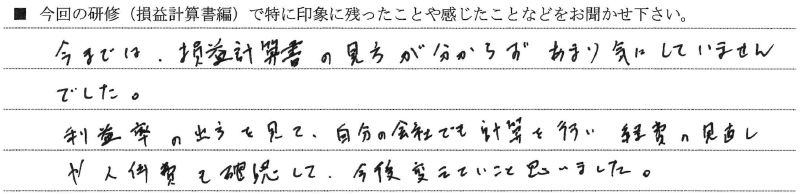 ■ 今回の研修（損益計算書編）で特に印象に残ったことや感じたことなどをお聞かせ下さい。
今までは、損益計算書の見方が分からず あまり気にしていません
でした。
利益率の出方を見て、自分の会社でも計算を行い 経費の見直し
や人件費も確認して、今後変えていこと思いました。